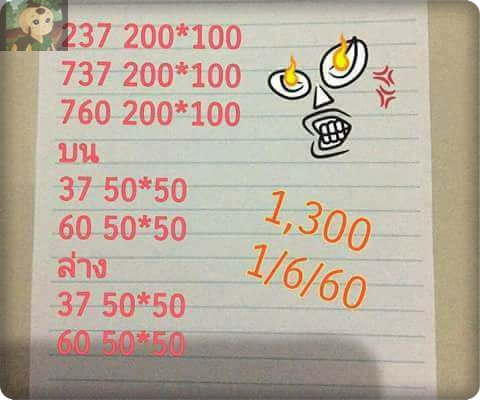 237 200*100
737 200*100
760 200*100
บน
37 50*50
60 50*50
ล่าง
37 50*50
60 50*50
1,300
1/6/60